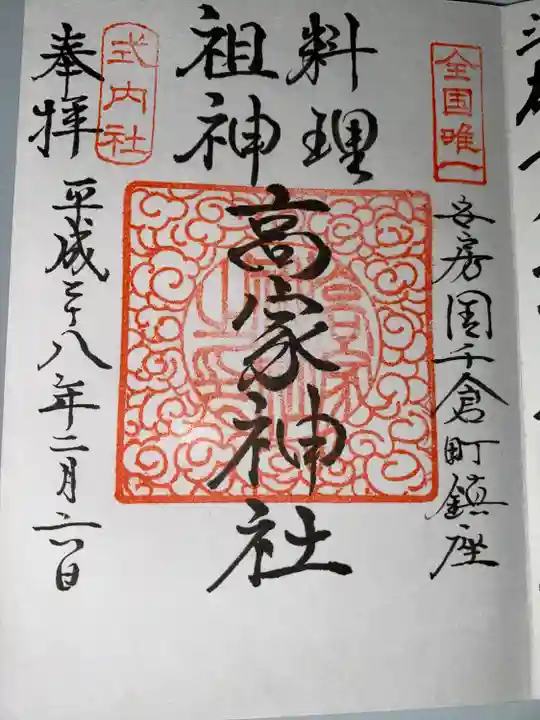 全国唯一
安房国千倉町鎮座
料理
祖神
高家神社
式内社
奉拝
平成二十八年二月六日